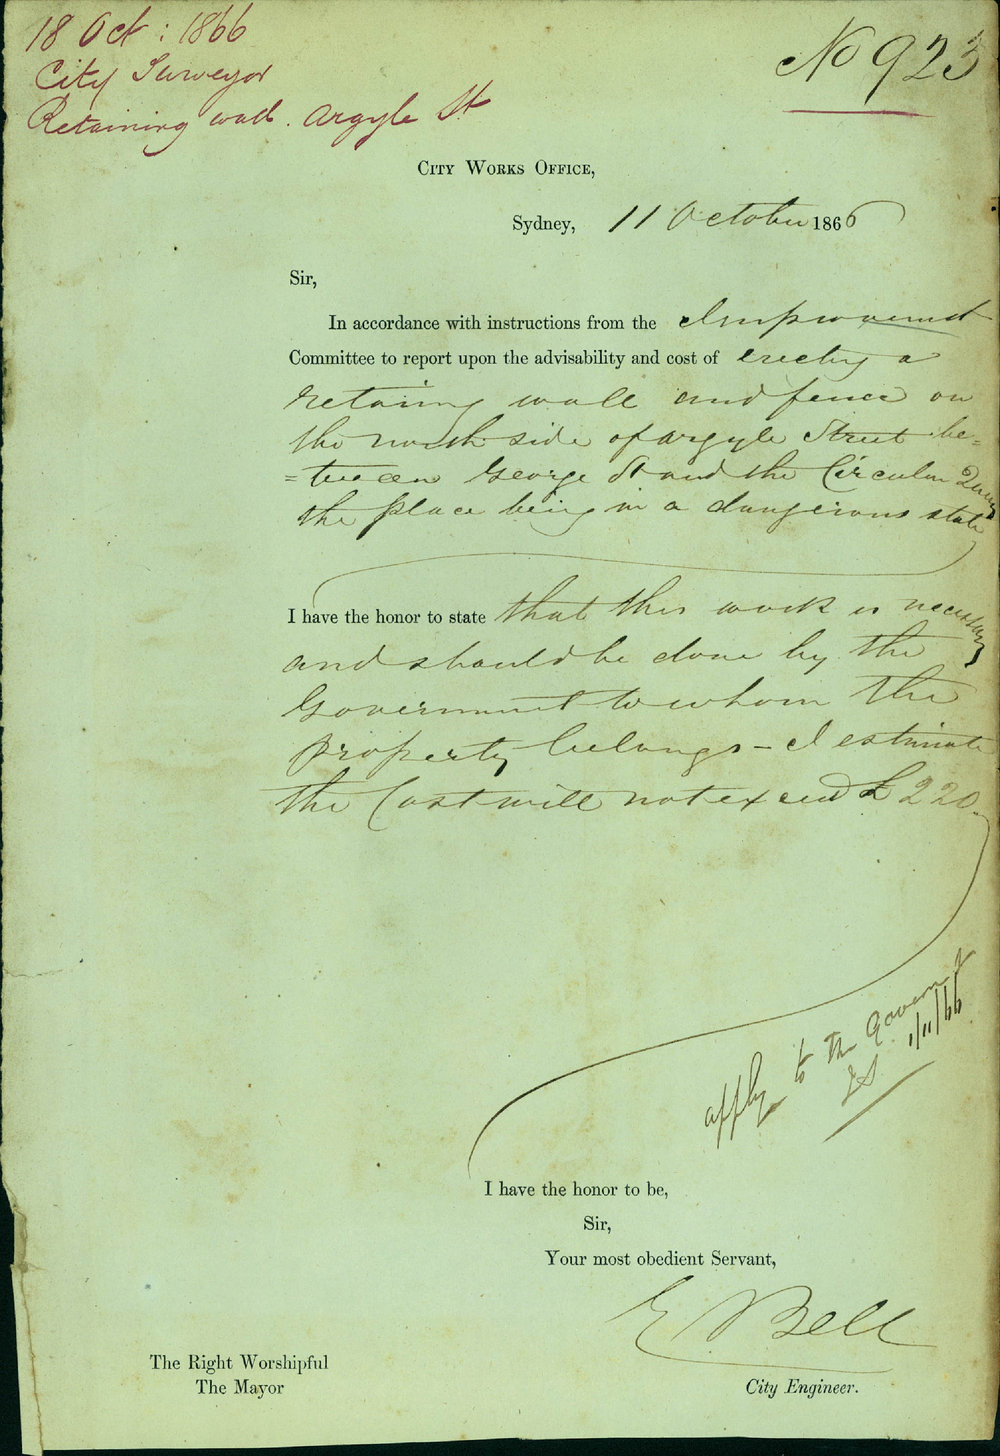 18 Oct : 1866
City Surveyor
Retaining wall. Argyle St
No 923
City Works Office,
Sydney, 11 October 1866
Sir,
In accordance with instructions from the Improvement
Committee to report upon the advisability and cost of erecting a
retaining wall and fence on
the north side of Argyle Street be-
=tween George St and the Circular Quay
the place being in a dangerous state
I have the honor to state that this work is necessary
and should be done by the
Government to whom the
property belongs - I estimate
the Cost will not exceed £220.
apply to the Governmt
JS 1/11/66
I have the honor to be,
Sir,
Your most obedient Servant,
E Bell
City Engineer.
The Right Worshipful
The Mayor